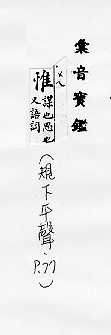 彙音寶鑑
惟
謀也思也
又語詞
（規下平聲，P.77）